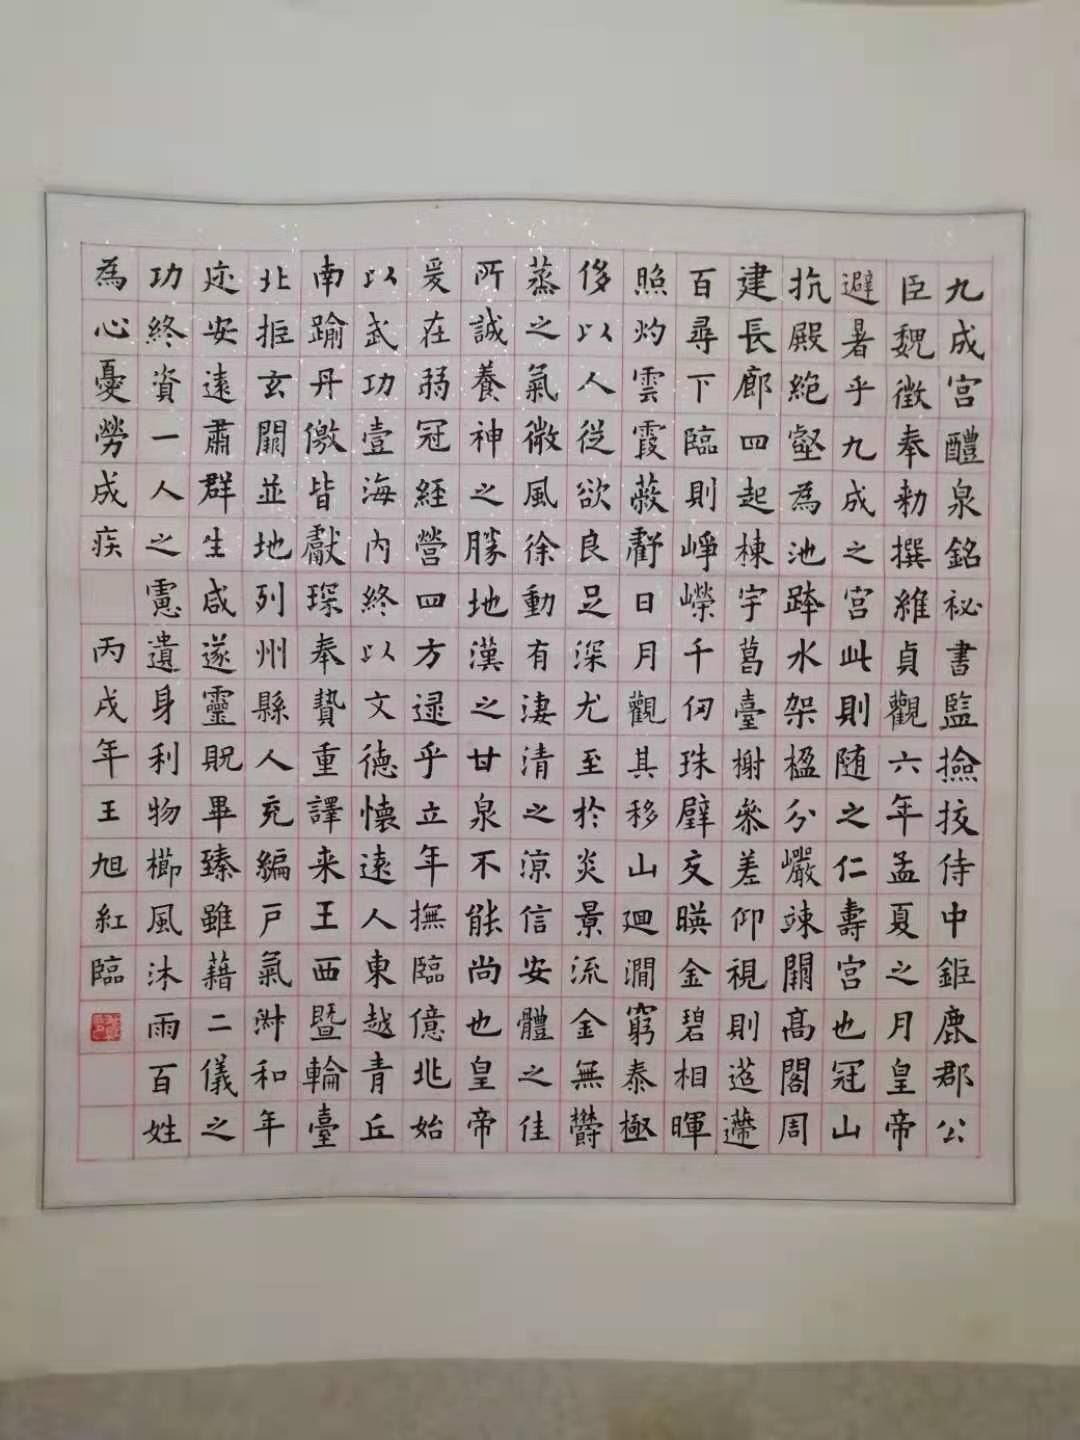 九成宮醴泉銘祕書監撿挍侍中鉅鹿郡公
臣魏徵奉勑撰維貞觀六年孟夏之月皇帝
避暑乎九成之宮此則随之仁壽宮也冠山
抗殿絶壑為池跨水架楹分巖竦闕高閣周
建長廊四起棟宇膠葛臺榭參差仰視則迢遰
百尋下臨則崢嶸千仞珠璧交暎金碧相暉
照灼雲霞蔽虧日月觀其移山迴澗窮泰極
侈以人從欲良足深尤至於炎景流金無欝
蒸之氣微風徐動有淒清之涼信安體之佳
所誠養神之勝地漢之甘泉不能尚也皇帝
爰在弱冠經營四方逯乎立年撫臨億兆始
以武功壹海內終以文德懷遠人東越青丘
南踰丹儌皆獻琛奉贄重譯来王西暨輪臺
北拒玄闕並地列州縣人充編戶氣淑和年
迩安遠肅群生咸遂靈貺畢臻雖藉二儀之
功終資一人之慮遺身利物櫛風沐雨百姓
為心憂勞成疾 丙戌年王旭紅臨